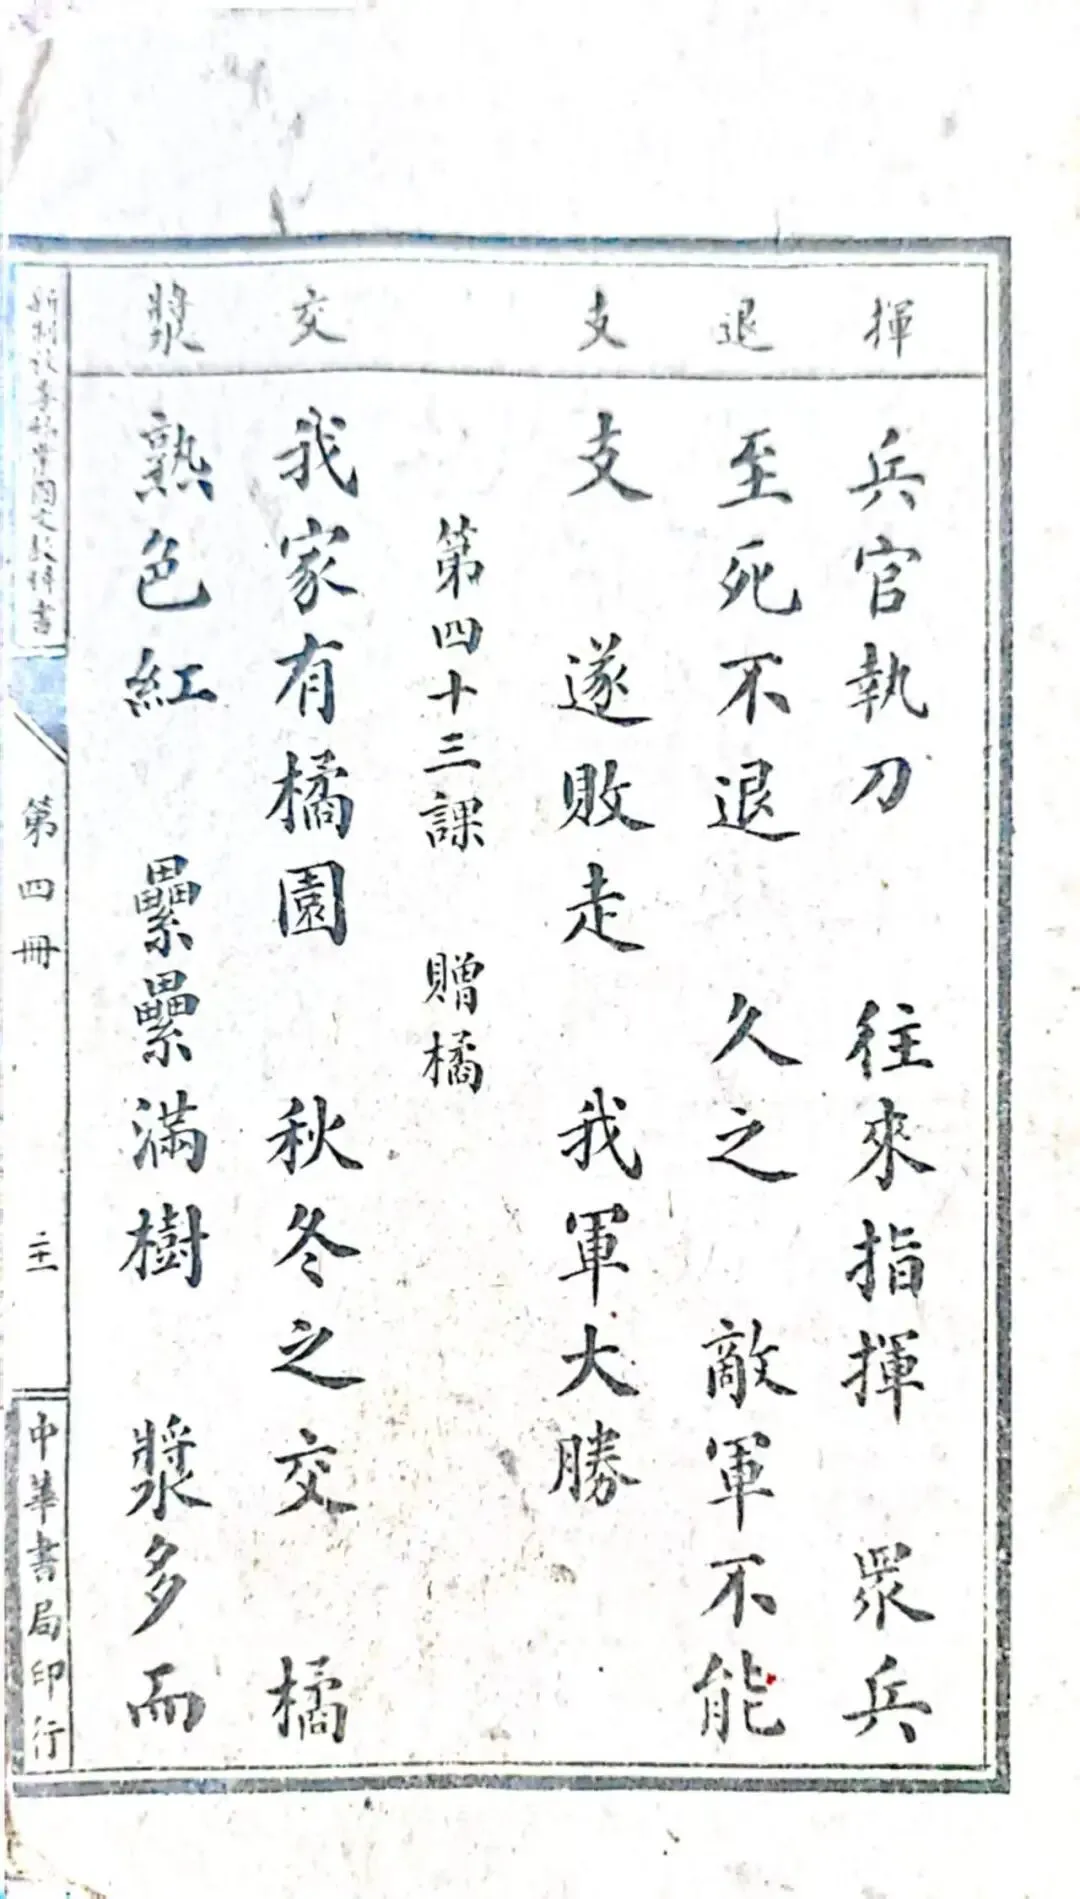 揮
退
支
交
漿
兵官執刀　往來指揮　眾兵
至死不退　久之　敵軍不能
支　遂敗走　我軍大勝
第四十三課　贈橘
我家有橘園　秋冬之交　橘
熟色紅　纍纍滿樹　漿多而
新制
國文教科書
第四冊
中華書局印行